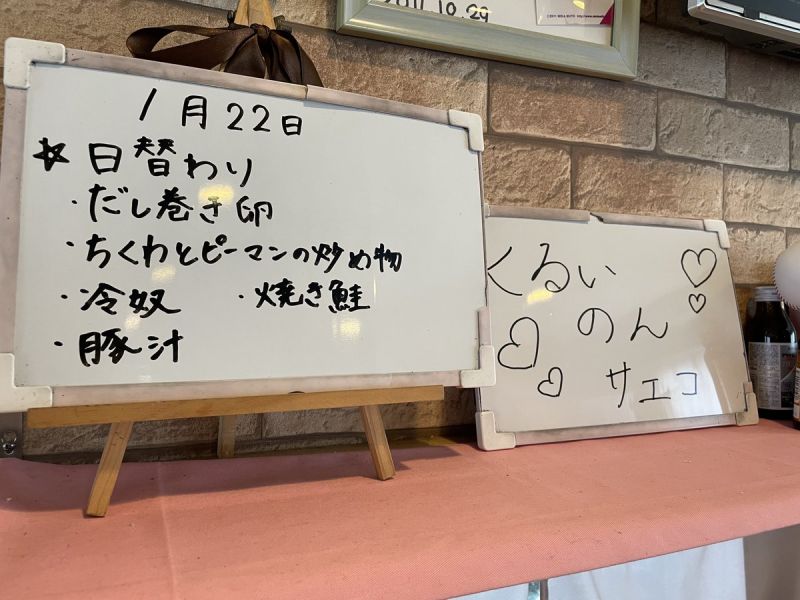 2011.10.29
1月22日
☆日替わり
・だし巻き卵
・ちくわとピーマンの炒め物
・冷奴 ・焼き鮭
・豚汁
くるい
のん
サエコ